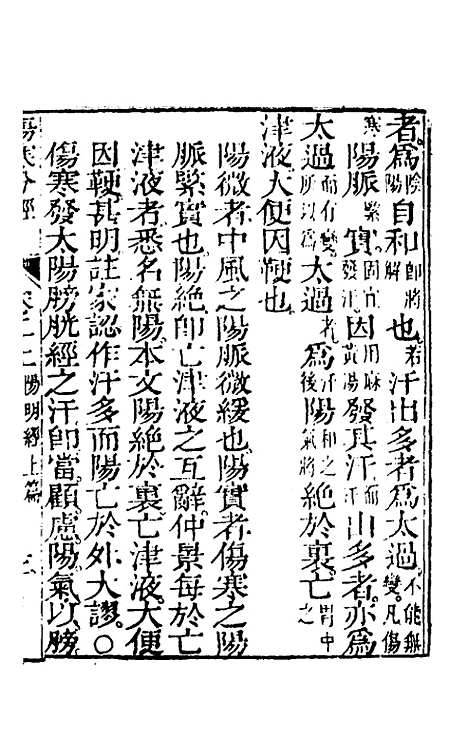 者爲陰陽自和即將解也若汗出多者爲太過不能無變凡傷
寒陽脈緊實固宜發汗因用麻黃湯發其汗而汗出多者亦爲
太過而有變所以爲太過者爲汗後陽和之氣將絕於裏亡胃中之
津液大便因鞕也
陽微者中風之陽脈微緩也陽實者傷寒之陽
脈緊實也陽絕即亡津液之互辭仲景每於亡
津液者悉名無陽本文陽絕於裏亡津液大便
因鞕甚明註家認作汗多而陽亡於外大謬○
傷寒發太陽膀胱經之汗即當顧慮陽氣以膀
傷寒分經 陽明經上篇